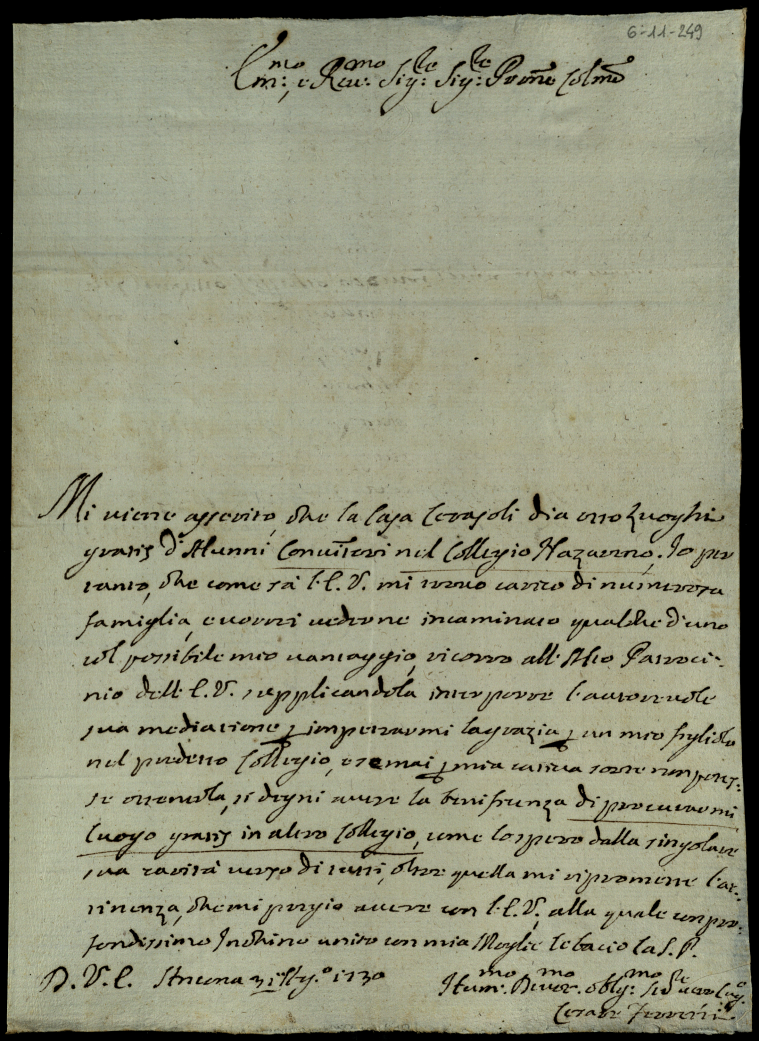 6-11-249
Em:mo, e Rev:mo Sig:re Sig:re Prone Colmo
Mi viene asserito, che la Casa Cerasoli dia otto Luoghi
gratis d'Alunni Convittori nel Collegio Nazareno. Io per
tanto, che come sà l'E.V. mi trovo carico di numerosa
famiglia, e vorrei vederne incaminato qualche d'uno
col possibile mio vantaggio, ricorro all'Alto Patroci-
nio dell'E.V. supplicandola interporre l'autorevole
sua mediazione p impetrarmi la grazia p un mio figliolo
nel predetto Collegio, e se mai p mia cattiva sorte non potes-
se ottenerla, si degni avere la benificenza di procurarmi
luogo gratis in altro Collegio, come lo spero dalla singolare
sua carità verso di tutti, oltre quella mi ripromette l'at-
tinenza, che mi pregio avere con l'E.V., alla quale con pro-
fondissimo Inchino unito con mia Moglie le bacio la S.P.
D.V.E. Ancona 1730
Hum:mo Devot:mo oblig:mo
Cesare Ferretti